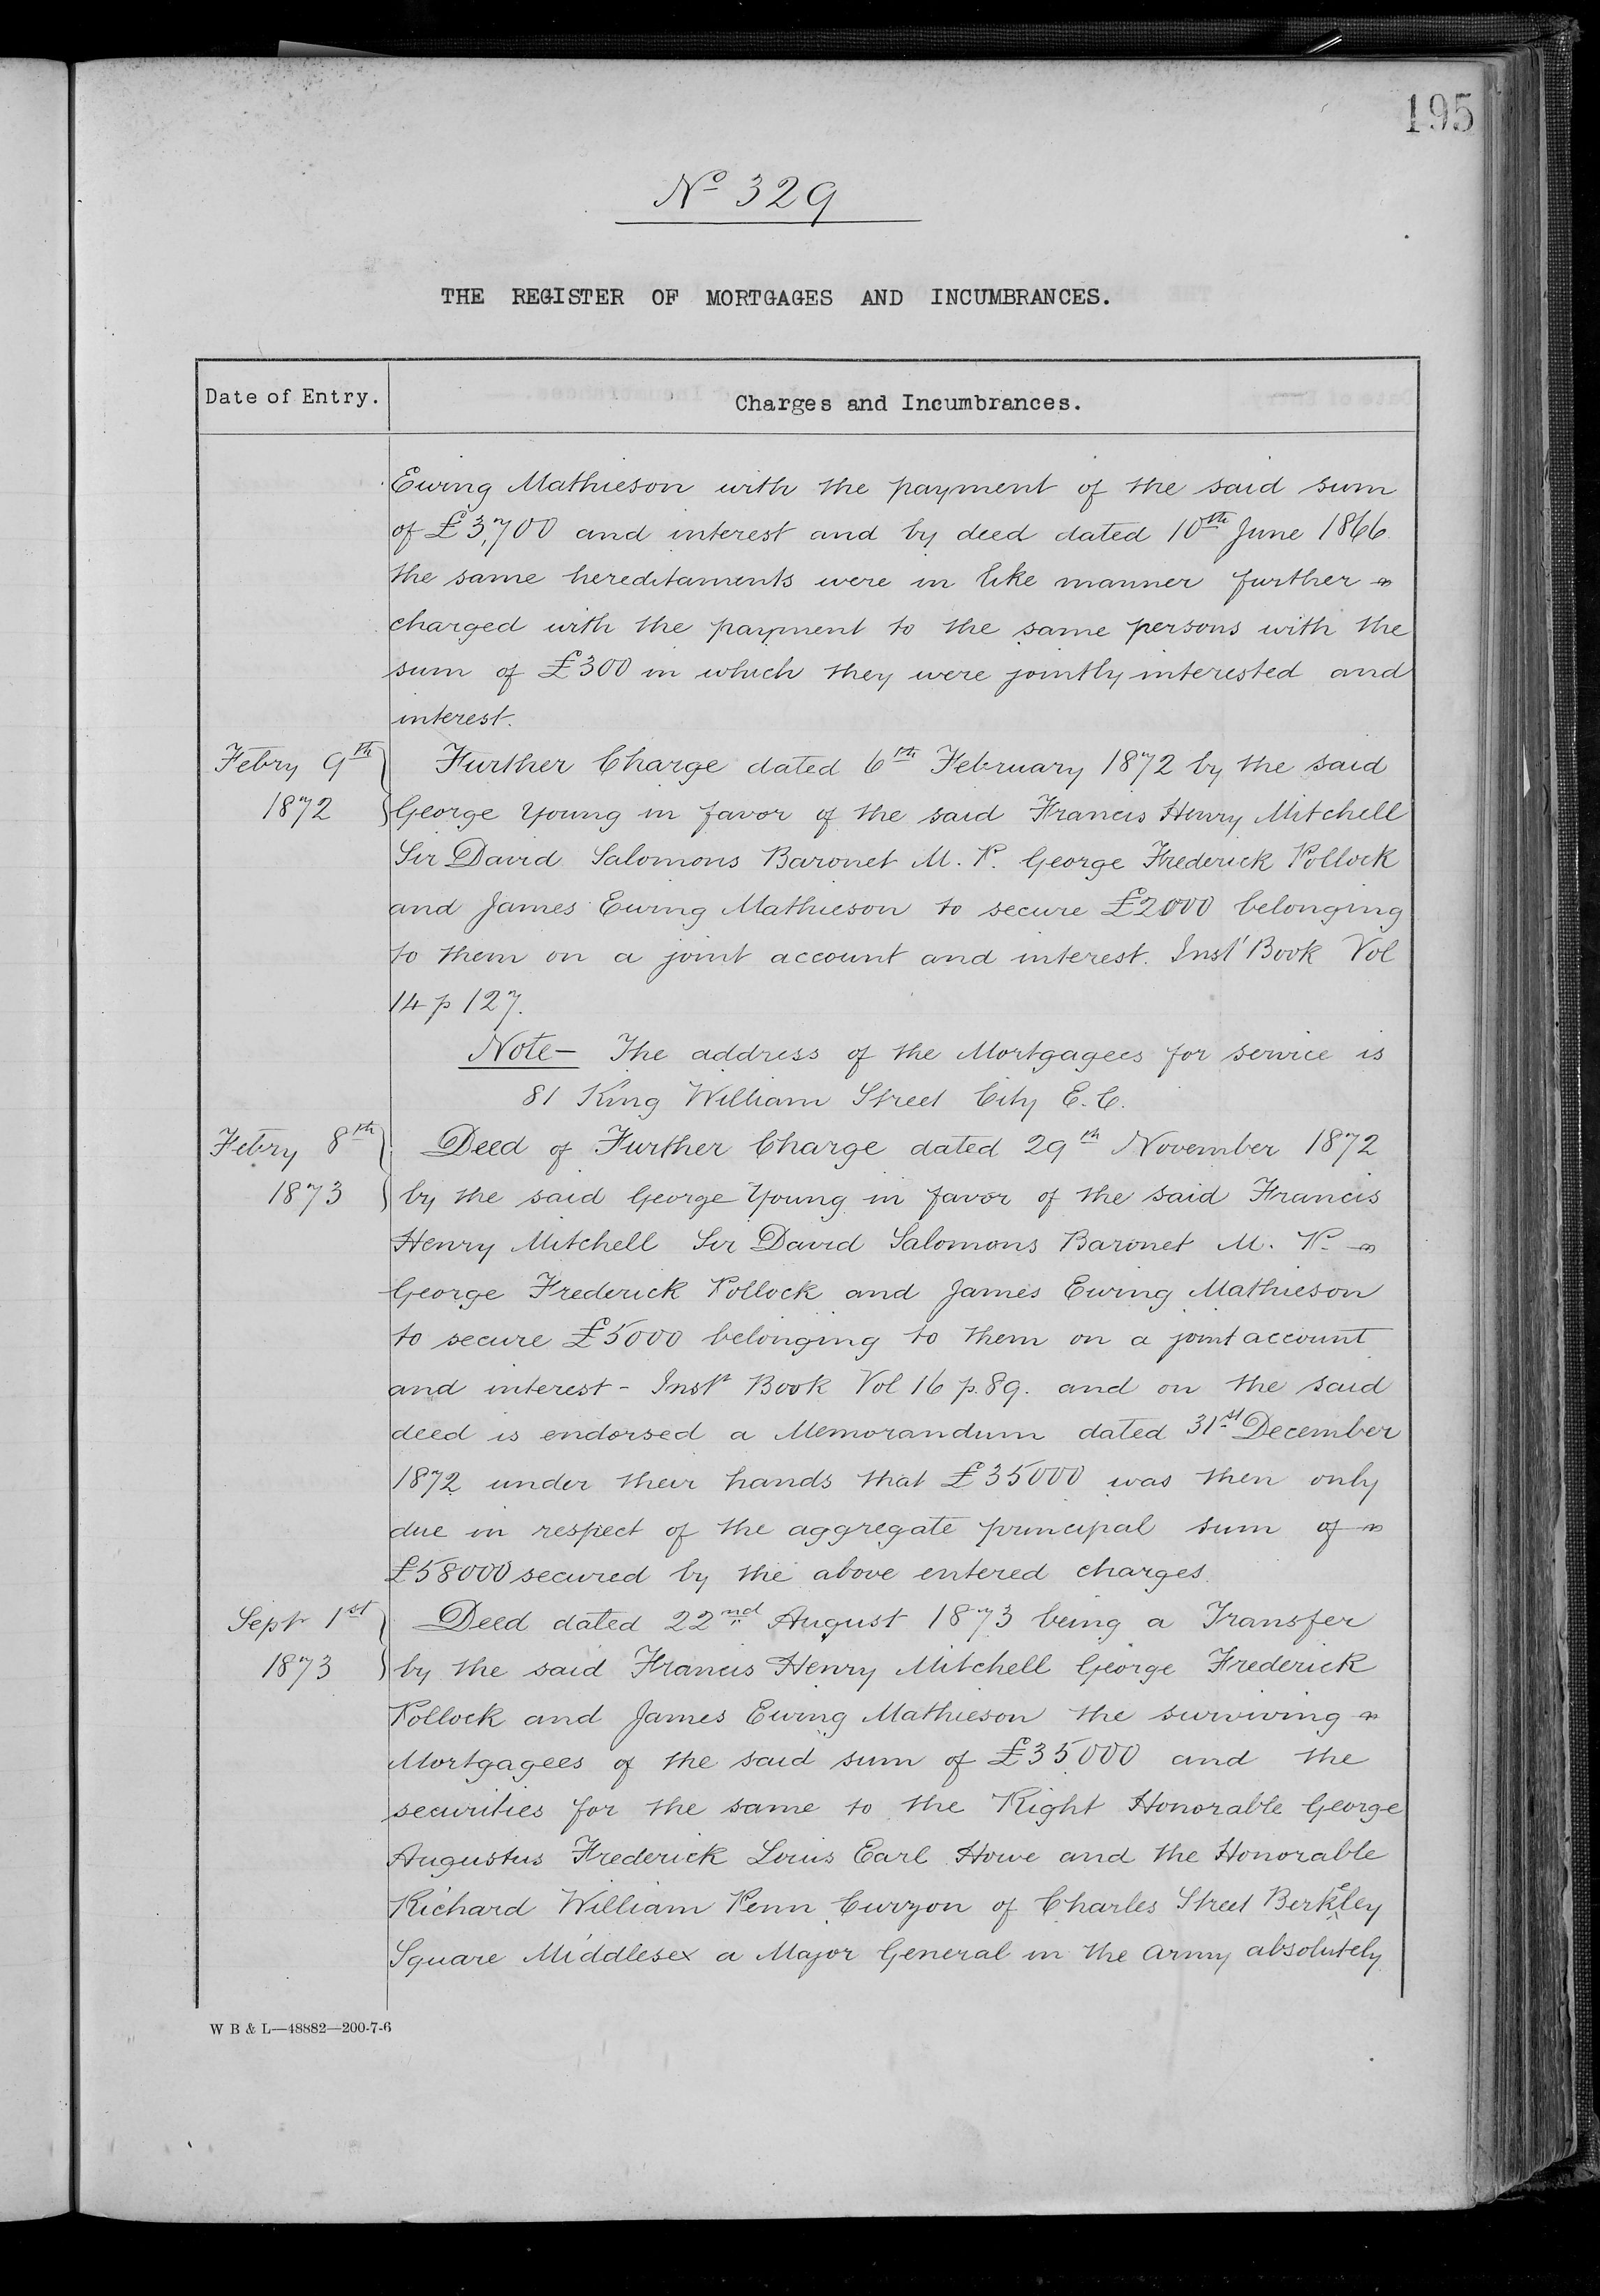 195
No 329
THE REGISTER OF MORTGAGES AND INCUMBRANCES.
Date of Entry.
Charges and Incumbrances.
Ewing Mathieson with the payment of the said sum
of £3,700 and interest and by deed dated 10th June 1866
the same hereditaments were in like manner further
charged with the payment to the same persons with the
sum of £300 in which they were jointly interested and
interest.
Febry 9th Further Charge dated 6th February 1872 by the said
1872 George Young in favor of the said Francis Henry Mitchell
Sir David Salomons Baronet M. P. George Frederick Pollock
and James Ewing Mathieson to secure £2000 belonging
to them on a joint account and interest. Inst' Book Vol
14 p 127.
Note— The address of the Mortgagees for service is
81 King William Street City E. C.
Febry 8th Deed of Further Charge dated 29th November 1872
1873 by the said George Young in favor of the said Francis
Henry Mitchell Sir David Salomons Baronet M. P.
George Frederick Pollock and James Ewing Mathieson
to secure £5000 belonging to them on a joint account
and interest - Inst Book Vol 16 p. 89. and on the said
deed is endorsed a Memorandum dated 31st December
1872 under their hands that £35000 was then only
due in respect of the aggregate principal sum of
£58000 secured by the above entered charges.
Sept 1st Deed dated 22nd August 1873 being a Transfer
1873 by the said Francis Henry Mitchell George Frederick
Pollock and James Ewing Mathieson the surviving
Mortgagees of the said sum of £35000 and the
securities for the same to the Right Honorable George
Augustus Frederick Louis Earl Howe and the Honorable
Richard William Penn Curzon of Charles Street Berkeley
Square Middlesex a Major General in the army absolutely
W B & L—48882—200-7-6